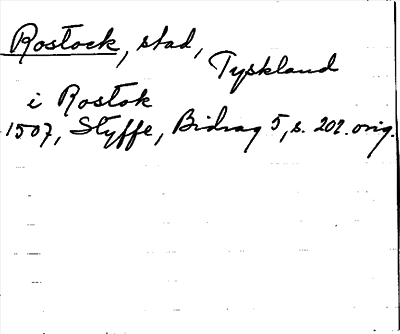 Rostock, stad,
Tyskland
i Rostok
1507, Styffe, Bidrag 5, s. 202. orig.